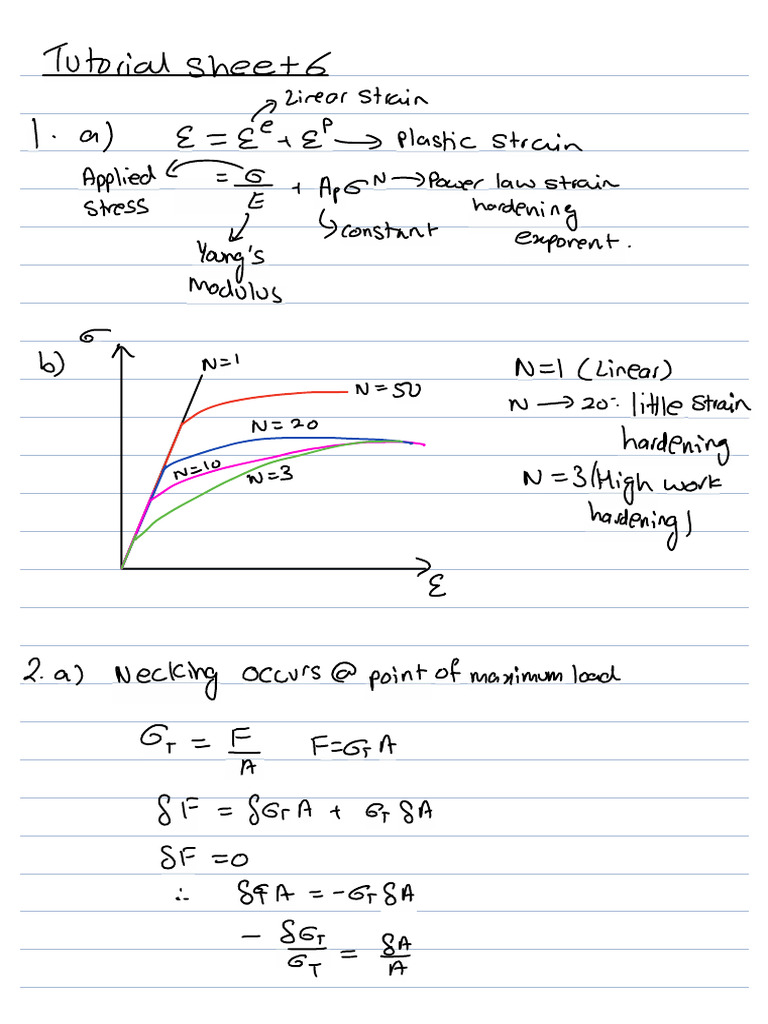 Tutorial sheet 6
Linear strain
1. a) ε = εᵉ + εᵖ → Plastic strain
Applied stress ← = σ/E + Apσᴺ → Power law strain hardening exponent.
↳ constant
Young's Modulus
b) σ
N=1
N=50
N=20
N=10
N=3
ε
N=1 (Linear)
N → 20: little strain
hardening
N=3 (High work
hardening)
2. a) Necking occurs @ point of maximum load
σT = F/A F=σT A
δF = δσT A + σT δA
δF =0
∴ δσA = -σT δA
- δσT/σT = δA/A